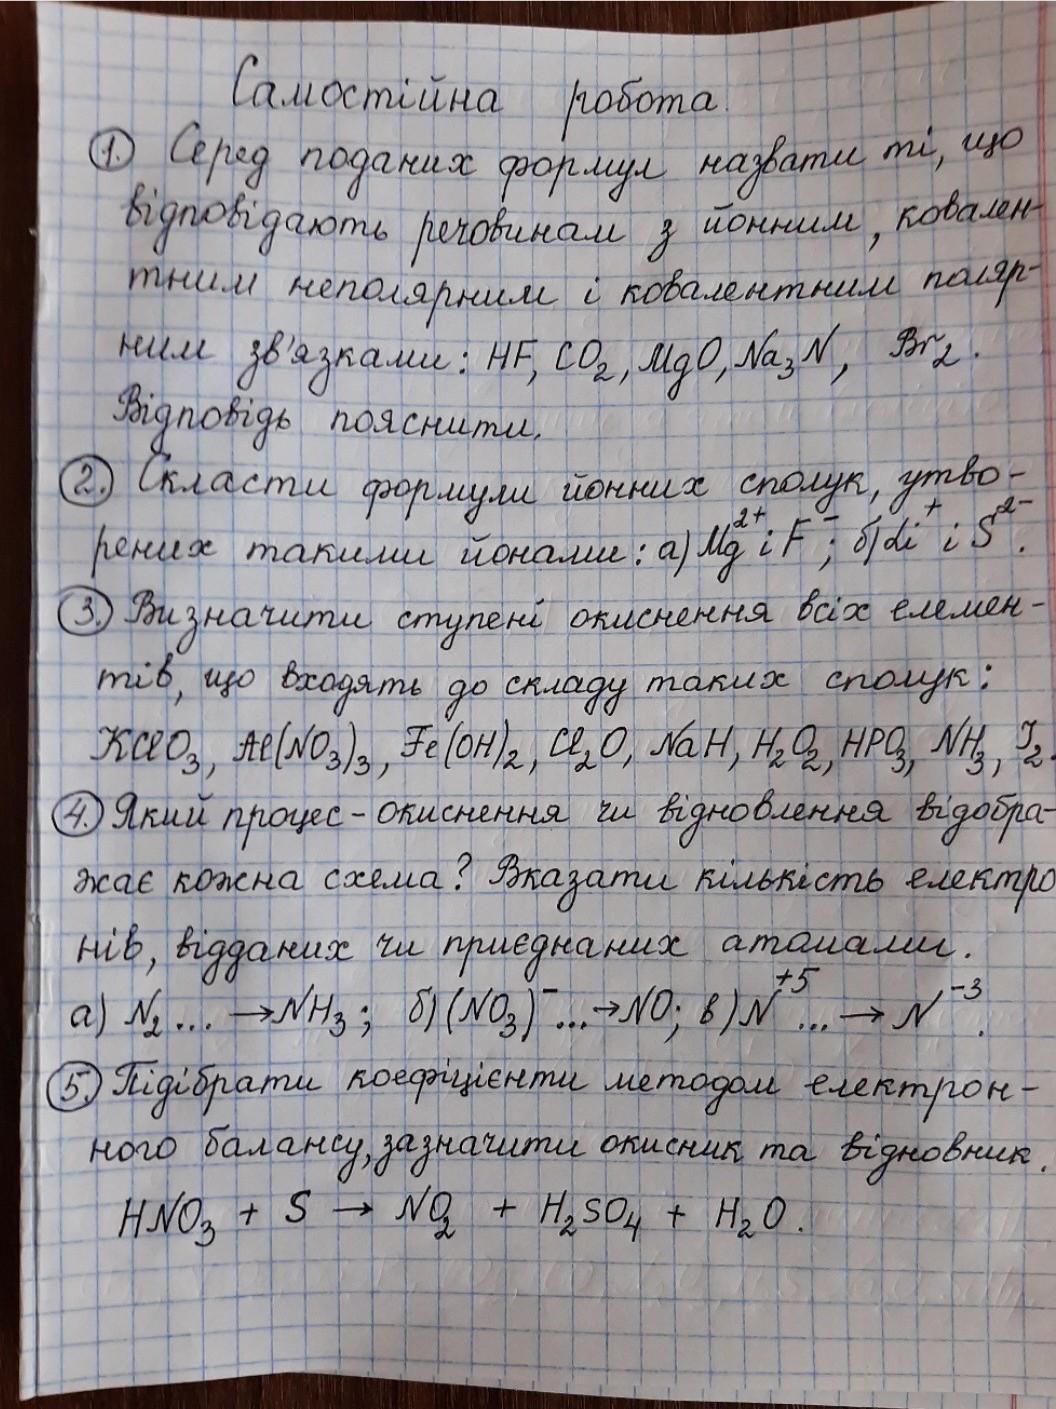 Самостійна робота.
1. Серед поданих формул назвати ті, що
відповідають речовинам з йонним, ковален-
тним неполярним і ковалентним поляр-
ним зв'язками: HF, CO₂, MgO, Na₃N, Br₂.
Відповідь пояснити.
2. Скласти формули йонних сполук, утво-
рених такими йонами: а) Mg²⁺ і F⁻; б) Li⁺ і S²⁻.
3. Визначити ступені окиснення всіх елемен-
тів, що входять до складу таких сполук:
KClO₃, Al(NO₃)₃, Fe(OH)₂, Cl₂O, NaH, H₂O₂, HPO₃, NH₃, I₂.
4. Який процес - окиснення чи відновлення відобра-
жає кожна схема? Вказати кількість електро
нів, відданих чи приєднаних атомами.
а) N₂ ... → NH₃; б) (NO₃)⁻ ... → NO; в) N⁺⁵ ... → N⁻³.
5. Підібрати коефіцієнти методом електрон-
ного балансу, зазначити окисник та відновник.
HNO₃ + S → NO₂ + H₂SO₄ + H₂O.